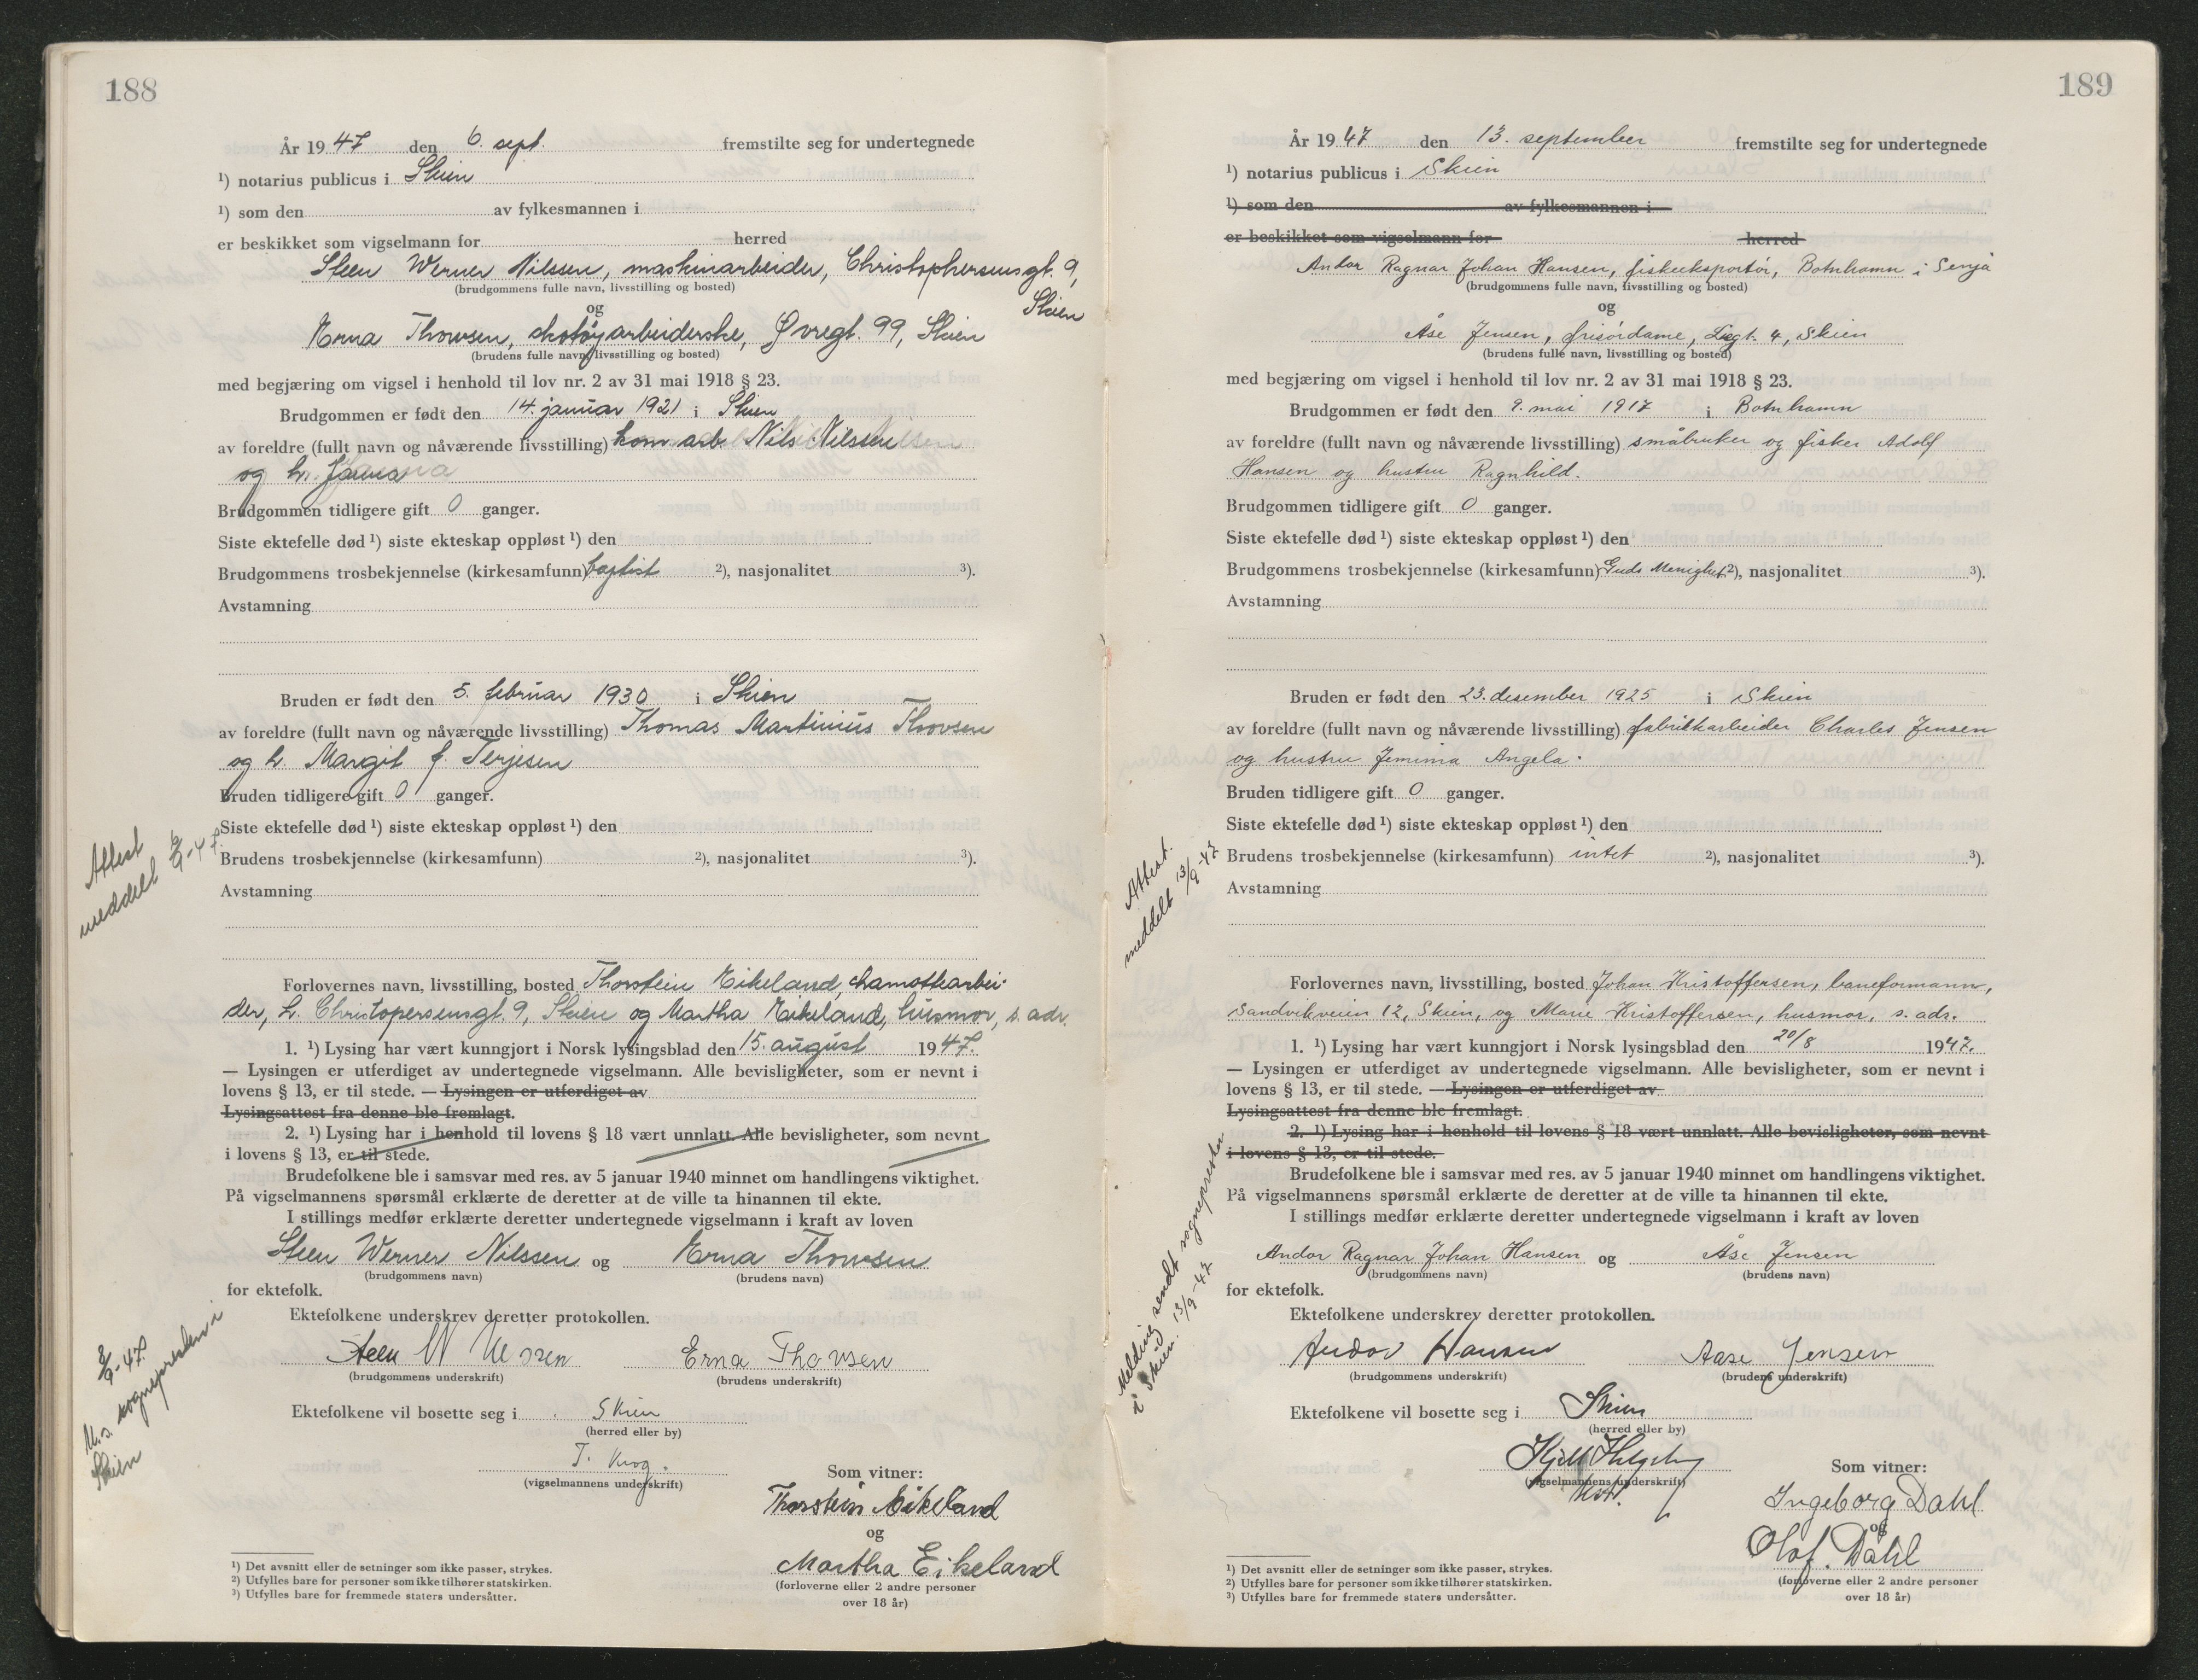 188
År 1947 den 6. sept. fremstilte seg for undertegnede
¹) notarius publicus i Skien
¹) som den av fylkesmannen i
er beskikket som vigselmann for herred
Steen Werner Nilssen, maskinarbeider, Christophersensgt. 9,
(brudgommens fulle navn, livsstilling og bosted)
Skien
og
Erna Thovsen, skotøyarbeiderske, Øvregt. 99, Skien
(brudens fulle navn, livsstilling og bosted)
med begjæring om vigsel i henhold til lov nr. 2 av 31 mai 1918 § 23.
Brudgommen er født den 14. januar 1921 i Skien
av foreldre (fullt navn og nåværende livsstilling) kom. arb. Nils Nilssen
og h. Janna
Brudgommen tidligere gift 0 ganger.
Siste ektefelle død ¹) siste ekteskap oppløst ¹) den
Brudgommens trosbekjennelse (kirkesamfunn) baptist ²), nasjonalitet ³).
Avstamning
Bruden er født den 5. februar 1930 i Skien
av foreldre (fullt navn og nåværende livsstilling) Thomas Martinius Thovsen
og h. Margit f. Terjesen
Bruden tidligere gift 0 ganger.
Siste ektefelle død ¹) siste ekteskap oppløst ¹) den
Brudens trosbekjennelse (kirkesamfunn) ²), nasjonalitet ³).
Avstamning
Attest
meddelt 6/9-47.
Forlovernes navn, livsstilling, bosted Thorstein Eikeland, chamottearbei-
der, L. Christopersensgt. 9, Skien og Martha Eikeland, husmor, s. adr.
1. ¹) Lysing har vært kunngjort i Norsk lysingsblad den 15. august 1947.
— Lysingen er utferdiget av undertegnede vigselmann. Alle bevisligheter, som er nevnt i
lovens § 13, er til stede. — Lysingen er utferdiget av
Lysingsattest fra denne ble fremlagt.
2. ¹) Lysing har i henhold til lovens § 18 vært unnlatt. Alle bevisligheter, som nevnt
i lovens § 13, er til stede.
Brudefolkene ble i samsvar med res. av 5 januar 1940 minnet om handlingens viktighet.
På vigselmannens spørsmål erklærte de deretter at de ville ta hinannen til ekte.
I stillings medfør erklærte deretter undertegnede vigselmann i kraft av loven
Steen Werner Nilssen og Erna Thovsen
(brudgommens navn) (brudens navn)
for ektefolk.
Ektefolkene underskrev deretter protokollen.
Steen W Nilssen Erna Thovsen
(brudgommens underskrift) (brudens underskrift)
Ektefolkene vil bosette seg i Skien
(herred eller by)
T. Krog.
(vigselmannens underskrift)
Som vitner:
Thorstein Eikeland
og
Martha Eikeland
(forloverne eller 2 andre personer
over 18 år)
8/9-47.
M. s. sognepresten i
Skien
¹) Det avsnitt eller de setninger som ikke passer, strykes.
²) Utfylles bare for personer som ikke tilhører statskirken.
³) Utfylles bare for fremmede staters undersåtter.
189
År 1947 den 13. september fremstilte seg for undertegnede
¹) notarius publicus i Skien
¹) som den av fylkesmannen i
er beskikket som vigselmann for herred
Andor Ragnar Johan Hansen, fiskeeksportør, Botnhamn i Senja
(brudgommens fulle navn, livsstilling og bosted)
og
Åse Jensen, frisørdame, Ligt. 4, Skien
(brudens fulle navn, livsstilling og bosted)
med begjæring om vigsel i henhold til lov nr. 2 av 31 mai 1918 § 23.
Brudgommen er født den 9. mai 1917 i Botnhamn
av foreldre (fullt navn og nåværende livsstilling) småbruker og fisker Adolf
Hansen og hustru Ragnhild.
Brudgommen tidligere gift 0 ganger.
Siste ektefelle død ¹) siste ekteskap oppløst ¹) den
Brudgommens trosbekjennelse (kirkesamfunn) Guds Menighet ²), nasjonalitet ³).
Avstamning
Bruden er født den 23. desember 1925 i Skien
av foreldre (fullt navn og nåværende livsstilling) fabrikkarbeider Charles Jensen
og hustru Jemima Angela.
Bruden tidligere gift 0 ganger.
Siste ektefelle død ¹) siste ekteskap oppløst ¹) den
Brudens trosbekjennelse (kirkesamfunn) intet ²), nasjonalitet ³).
Avstamning
Attest.
meddelt 13/9-47
Forlovernes navn, livsstilling, bosted Johan Kristoffersen, baneformann,
Sandvikveien 12, Skien, og Marie Kristoffersen, husmor, s. ads.
1. ¹) Lysing har vært kunngjort i Norsk lysingsblad den 20/8 1947.
— Lysingen er utferdiget av undertegnede vigselmann. Alle bevisligheter, som er nevnt i
lovens § 13, er til stede. — Lysingen er utferdiget av
Lysingsattest fra denne ble fremlagt.
2. ¹) Lysing har i henhold til lovens § 18 vært unnlatt. Alle bevisligheter, som nevnt
i lovens § 13, er til stede.
Brudefolkene ble i samsvar med res. av 5 januar 1940 minnet om handlingens viktighet.
På vigselmannens spørsmål erklærte de deretter at de ville ta hinannen til ekte.
I stillings medfør erklærte deretter undertegnede vigselmann i kraft av loven
Andor Ragnar Johan Hansen og Åse Jensen
(brudgommens navn) (brudens navn)
for ektefolk.
Ektefolkene underskrev deretter protokollen.
Andor Hansen Aase Jensen
(brudgommens underskrift) (brudens underskrift)
Ektefolkene vil bosette seg i Skien
(herred eller by)
Kjell
(vigselmannens underskrift)
Som vitner:
Ingeborg Dahl
og
Olaf. Dahl
(forloverne eller 2 andre personer
over 18 år)
Melding sendt sognepresten
i Skien. 13/9-47
¹) Det avsnitt eller de setninger som ikke passer, strykes.
²) Utfylles bare for personer som ikke tilhører statskirken.
³) Utfylles bare for fremmede staters undersåtter.